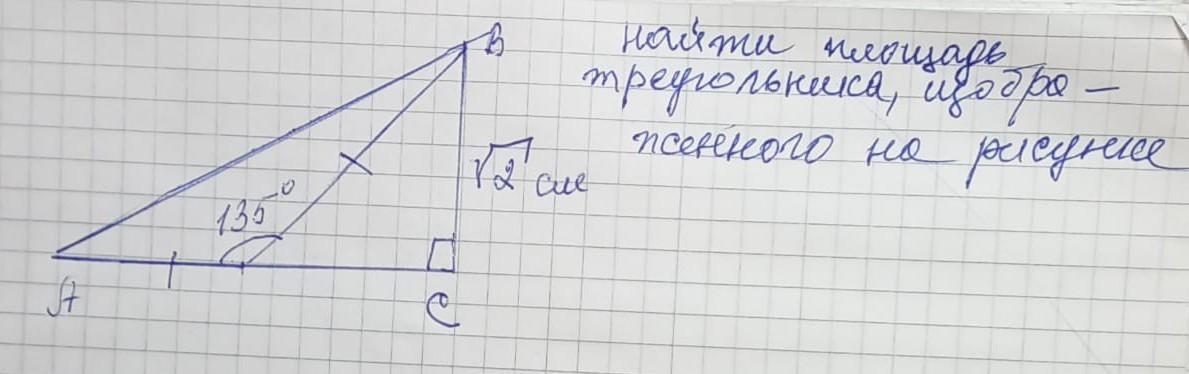 B
найти площадь
треугольника, изобра-
женного на рисунке
√2 см
135°
A
C